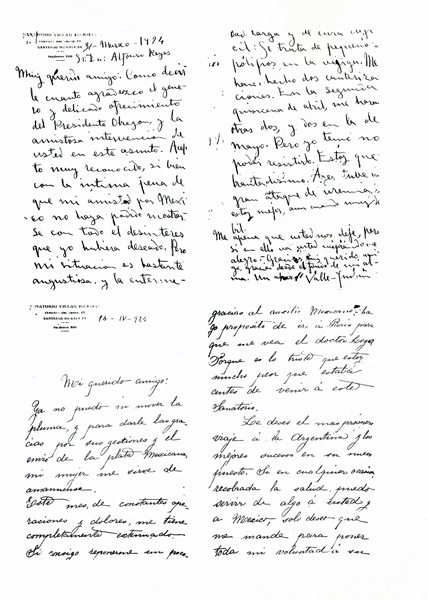 SANATORIO VILLAR IGLESIAS
SANTIAGO
31-Marzo-1924
Sr. Dn: Alfonso Reyes
Muy querido amigo: Como decir
le cuanto agradezco el gene
ro y delicado ofrecimiento
del Presidente Obregon, y la
amistosa intervencion de
usted en este asunto. Acep
to muy reconocido, si bien
con la intima pena de
que mi amistad por Mexi
co no haya podido mostrar
se con todo el desinteres
que yo hubiera deseado. Pero
mi situacion es bastante
angustiosa, y la enferme-
dad larga y de cura difi
cil: Se trata de pequeños
pólipos en la vejiga. Me
han hecho dos cauteriza
ciones. En la segunda
quincena de abril me haran
otras dos, y dos en la de
mayo. Pero yo temo no
poder resistirlo. Estoy que
brantadisimo. Ayer tuve un
gran ataque de uremia;
estoy mejor, aun cuando muy de
bil.
Me apena que usted nos deje, pero
si en ello va usted mejorado me
alegro. Gracias, mi querido ami
go, gracias desde el fondo de mi al
ma. Un abrazo Valle-Inclán
SANATORIO VILLAR IGLESIAS
SANTIAGO
14-IV-924
Mi querido amigo:
Ya no puedo ni mover la
pluma, y para darle las gra
cias por sus gestiones y el
envio de la plata Mexicana,
mi mujer me sirve de
amanuense.
Este mes, de constantes ope
raciones y dolores, me tiene
completamente extenuado
Si consigo reponerme un poco
gracias al auxilio Mexicano-ha
go propósito de ir á Paris para
que me vea el doctor
Porque es lo triste que estoy
mucho peor que estaba
antes de venir á este
Sanatorio.
Les deseo el mas prospero
viaje á la Argentina y los
mejores sucesos en su nuevo
puesto. Si en cualquier ocasion,
recobrada la salud, puedo
servir de algo á usted y
a Mexico, solo deseo que
me mande para poner
toda mi voluntad á su